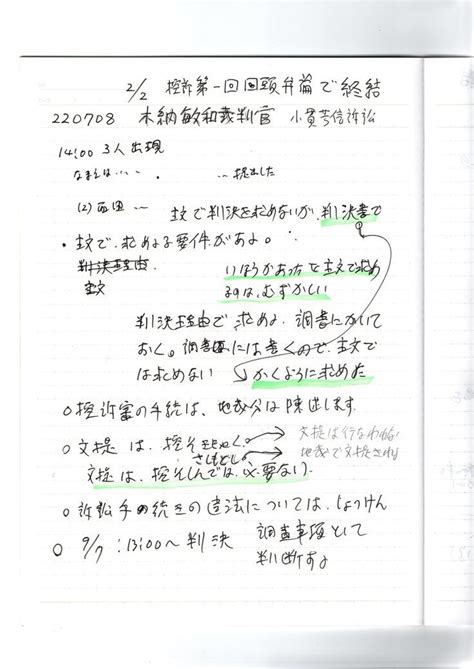 2/2 控訴第一回口頭弁論で終結
220708 木納敏和裁判官 小貫芳信訴訟
14:00 3人出現
なまえは‥‥ ‥提出した
(2) ‥ 主文で判決を求めないが、判決書で
・主文で、求める要件がある。
判決理由 いほうがあったを主文で求め
主文 るのは、むずかしい
判決理由で求める、調書にかいて
おく。調書には書くので、主文で
は求めない かくように求めた
○控訴審の手続は、地裁分は陳述します。
○文提は、控そ 文提は行なわれない
さしもどし。 地裁で文提され
文提は、控そしんでは、必要ない。
○訴訟手の続きの違法については、しょっけん
○ 9/7 :13:00～判決 調査事項として
判断する